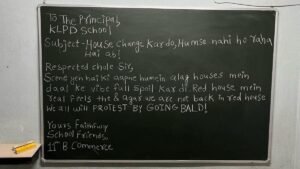 To The Principal,
KLPD School
Subject-House Change Kar do, Humse nahi ho raha
Hai ab!
Respected chole Sir,
Scene yeh hai ki aapne humein alag houses mein
daal ke vibe full spoil kar di. Red house mein
real feels the & agar we are not back in red house
We all will PROTEST BY GOING BALD!
Yours Faithfully
School Friends,
11th B Commerce